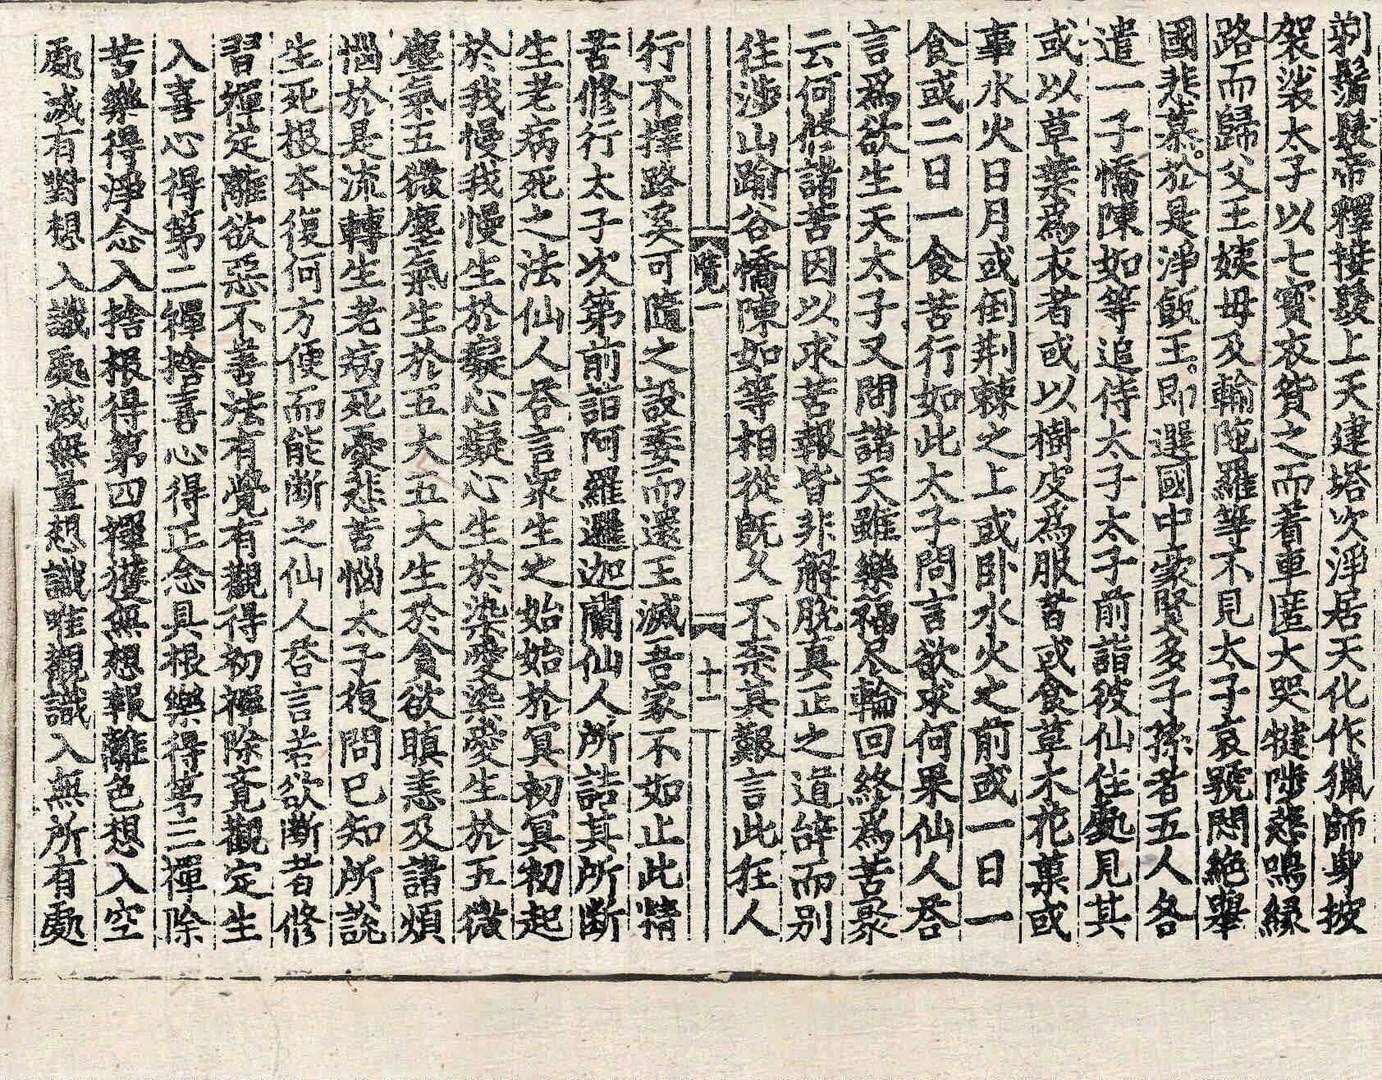 剃鬚髮帝釋接髮上天建塔次淨居天化作獵師身披
袈裟太子以七寶衣貿之而着車匿大哭犍陟悲鳴緣
路而歸父王姨母及輪陁羅等不見太子哀號悶絶擧
國悲慕於是淨飯王即選國中豪賢多子孫者五人各
遣一子憍陳如等追侍太子太子前詣彼仙住處見其
或以草葉爲衣者或以樹皮爲服者或食草木花菓或
事水火日月或倒荆棘之上或卧水火之前或一日一
食或二日一食苦行如此太子問言欲求何果仙人荅
言爲欲生天太子又問諸天雖樂福尽輪回終爲苦聚
云何修諸苦因以求苦報皆非解脫真正之道辞而別
往涉山踰谷憍陳如等相從旣久不柰其艱言此狂人
覽一 十二
行不擇路矣可隨之設委而還王滅吾家不如止此精
苦修行太子次第前詣阿羅邏迦蘭仙人所詰其所断
生老病死之法仙人荅言衆生之始始於冥初冥初起
於我慢我慢生於癡心癡心生於染愛染愛生於五微
塵氣五微塵氣生於五大五大生於貪欲瞋恚及諸煩
惱於是流轉生老病死憂悲苦惱太子復問已知所說
生死根本復何方便而能断之仙人荅言若欲斷者修
習禪定離欲惡不善法有覺有觀得初禪除覔觀定生
入喜心得第二禪捨喜心得正念具根樂得第三禪除
苦樂得淨念入捨根得第四禪獲無想報離色想入空
處滅有對想入識處滅無量想識唯觀識入無所有處